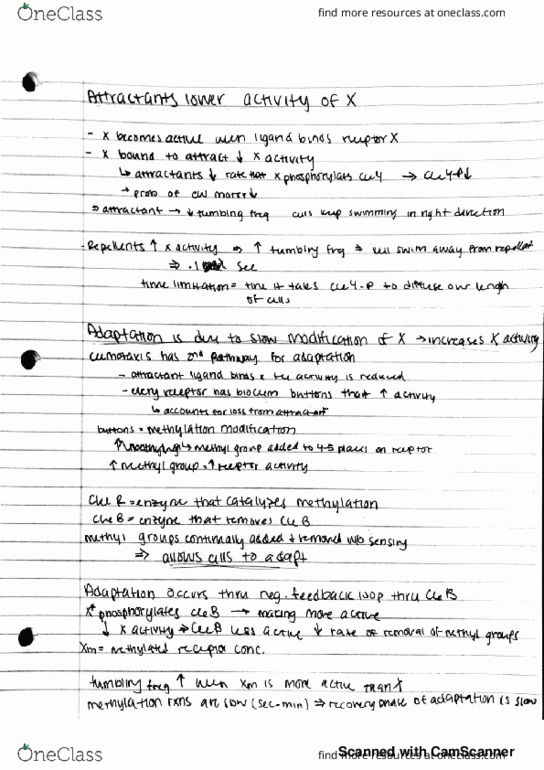 OneClass
find more resources at oneclass.com
Attractants lower activity of X
- X becomes active when ligand binds receptor X
- X bound to attract ↓ X activity
↳ attractants ↓ rate that X phosphorylates CheY → CheY-P↓
→ prob of CW motor↓
⇒ attractant → ↓ tumbling freq cells keep swimming in right direction
- Repellents ↑ X activity ⇒ ↑ tumbling freq ⇒ cell swim away from repellent
⇒ .1 sec
time limitation = time it takes CheY-P to diffuse over length
of cells
Adaptation is due to slow modification of X → increases X activity
chemotaxis has 2nd pathway for adaptation
- attractant ligand binds & the activity is reduced
- every receptor has biochem buttons that ↑ activity
↳ accounts for loss from attractant
buttons = methylation modification
↳ methyl group added to 4-5 places on receptor
↑ methyl group = ↑ receptor activity
Che R = enzyme that catalyzes methylation
Che B = enzyme that removes Che B
methyl groups continually added + removed w/o sensing
⇒ allows cells to adapt
Adaptation occurs thru neg. feedback loop thru CheB
X* phosphorylates CheB → making more active
↓ X activity ⇒ CheB less active ↓ rate of removal of methyl groups
Xm = methylated receptor conc.
tumbling freq ↑ when Xm is more active than X
methylation rxns are slow (sec-min) ⇒ recovery phase of adaptation is slow
OneClass
find more resources at oneclass.com
Scanned with CamScanner